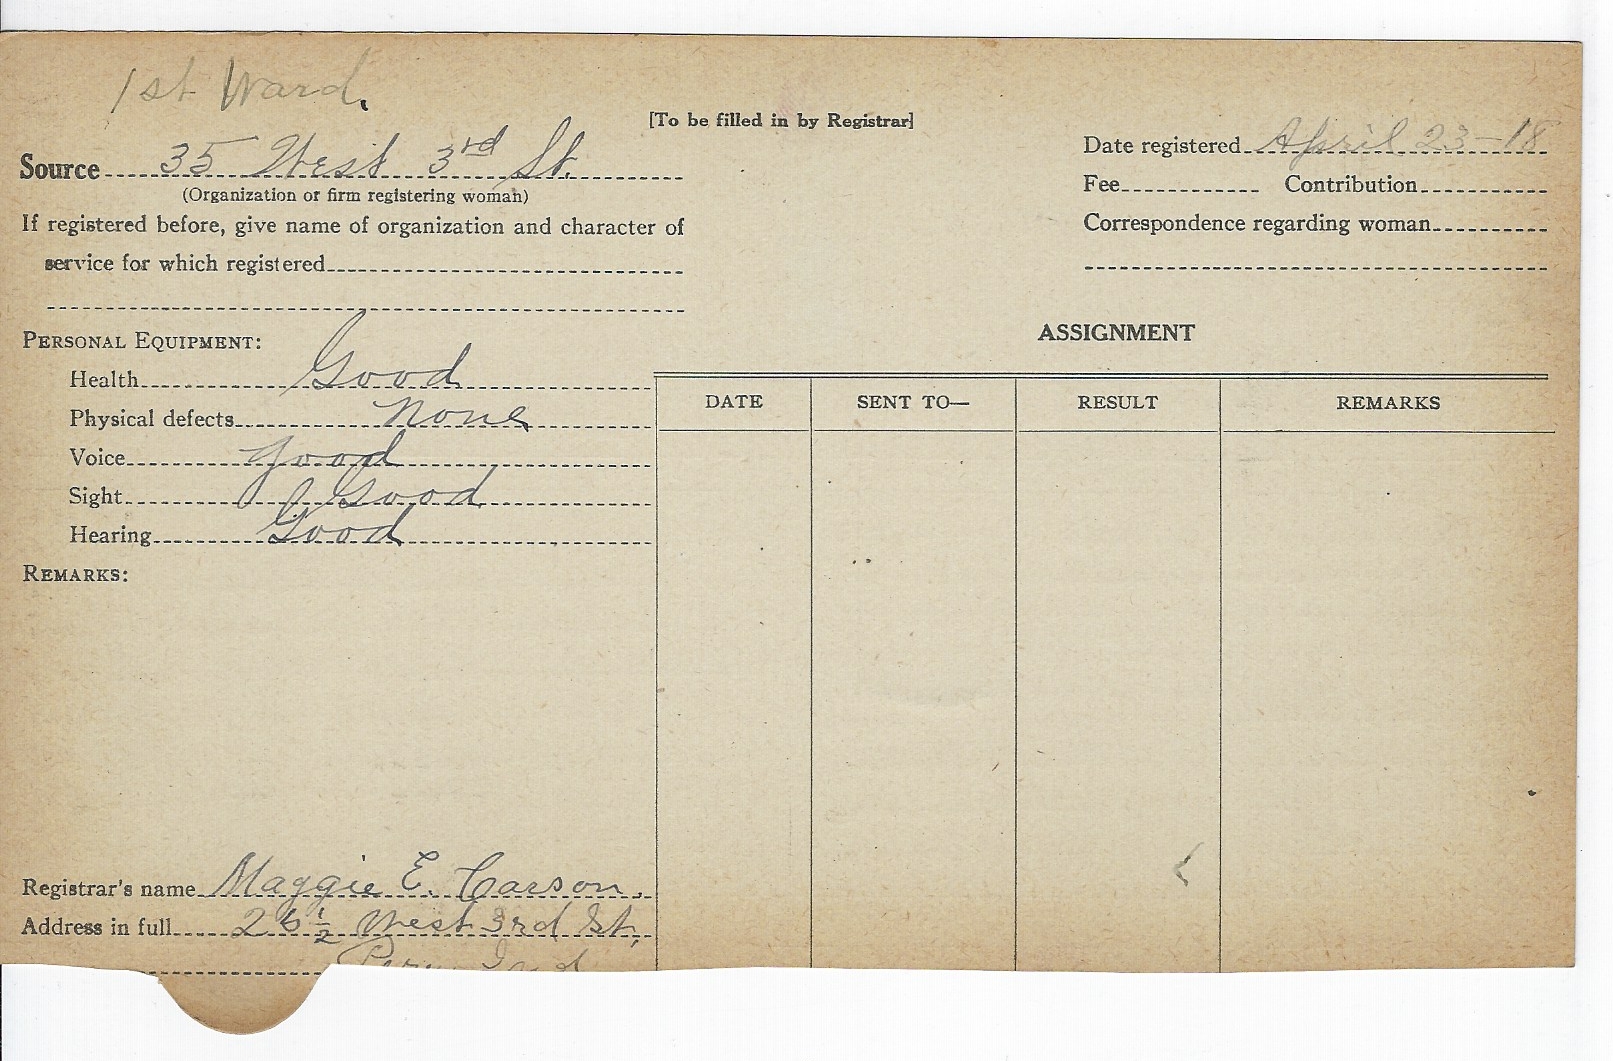 1st Ward.
[To be filled in by Registrar]
Source 35 West 3rd St.
(Organization or firm registering woman)
If registered before, give name of organization and character of
service for which registered
Date registered April 23-18
Fee Contribution
Correspondence regarding woman
PERSONAL EQUIPMENT:
Health Good
Physical defects None
Voice good
Sight Good
Hearing Good
REMARKS:
ASSIGNMENT
DATE SENT TO— RESULT REMARKS
Registrar's name Maggie E. Carson.
Address in full 26 1/2 West 3rd St,
Peru Ind